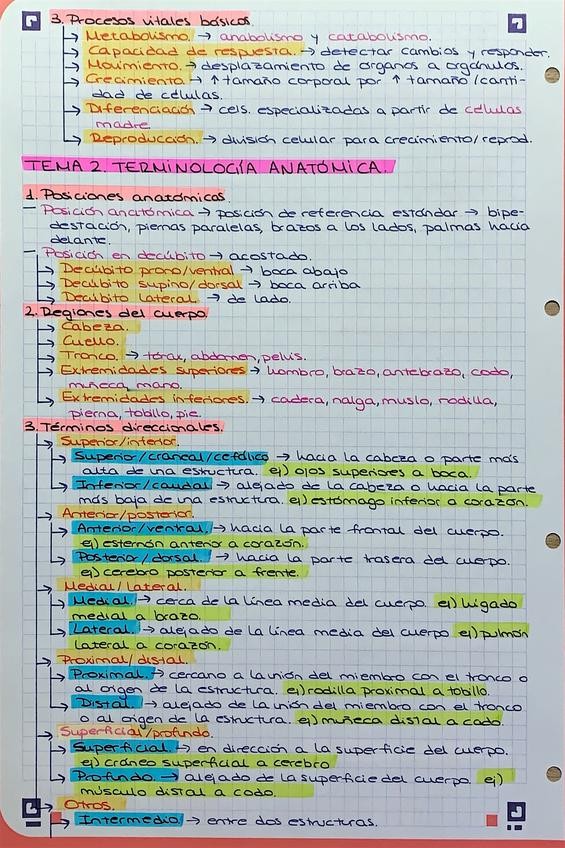 3. Procesos vitales básicos.
→ Metabolismo → anabolismo y catabolismo.
→ Capacidad de respuesta. → detectar cambios y responder.
→ Movimiento. → desplazamiento de órganos a orgánulos.
→ Crecimiento → ↑ tamaño corporal por ↑ tamaño /canti-
dad de células.
→ Diferenciación → cels. especializadas a partir de células
madre
→ Reproducción. → división celular para crecimiento/reprod.
TEMA 2. TERMINOLOGÍA ANATÓMICA.
1. Posiciones anatómicas.
— Posición anatómica → posición de referencia estándar → bipe-
destación, piernas paralelas, brazos a los lados, palmas hacia
delante.
— Posición en decúbito → acostado.
→ Decúbito prono/ventral → boca abajo
→ Decúbito supino/dorsal → boca arriba
→ Decúbito lateral. → de lado.
2. Regiones del cuerpo.
→ Cabeza.
→ Cuello.
→ Tronco. → tórax, abdomen, pelvis.
→ Extremidades superiores → hombro, brazo, antebrazo, codo,
muñeca, mano.
→ Extremidades inferiores. → cadera, nalga, muslo, rodilla,
pierna, tobillo, pie.
3. Términos direccionales.
→ Superior/inferior.
→ Superior/craneal/cefálico → hacia la cabeza o parte más
alta de una estructura. ej) ojos superiores a boca.
→ Inferior/caudal → alejado de la cabeza o hacia la parte
más baja de una estructura. ej) estómago inferior a corazón.
→ Anterior/posterior.
→ Anterior/ventral. → hacia la parte frontal del cuerpo.
ej) esternón anterior a corazón.
→ Posterior/dorsal. → hacia la parte trasera del cuerpo.
ej) cerebro posterior a frente.
→ Medial/lateral.
→ Medial. → cerca de la línea media del cuerpo. ej) hígado
medial a brazo.
→ Lateral. → alejado de la línea media del cuerpo. ej) pulmón
lateral a corazón.
→ Proximal/distal.
→ Proximal. → cercano a la unión del miembro con el tronco o
al origen de la estructura. ej) rodilla proximal a tobillo.
→ Distal. → alejado de la unión del miembro con el tronco
o al origen de la estructura. ej) muñeca distal a codo.
→ Superficial/profundo.
→ Superficial. → en dirección a la superficie del cuerpo.
ej) cráneo superficial a cerebro
→ Profundo. → alejado de la superficie del cuerpo. ej)
músculo distal a codo.
→ Otros.
→ Intermedio. → entre dos estructuras.